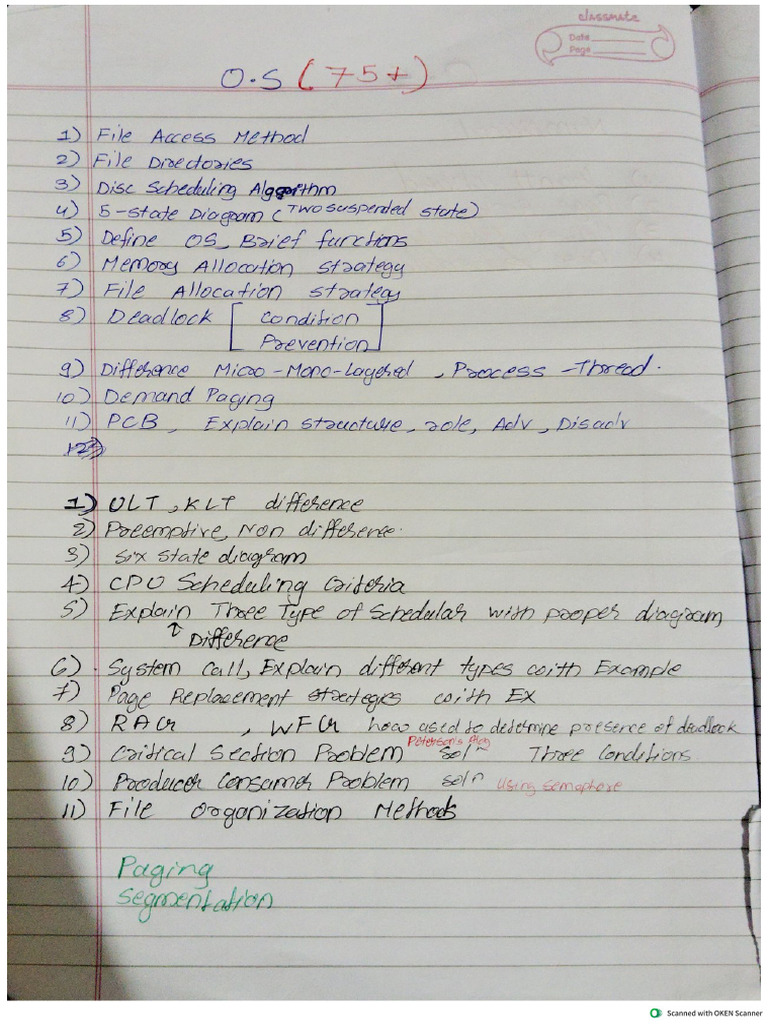 classmate
Date
Page
O.S (75+)
1) File Access Method
2) File Directories
3) Disc Scheduling Algorithm
4) 5-state Diagram (Two suspended state)
5) Define OS, Brief functions
6) Memory Allocation strategy
7) File Allocation strategy
8) Deadlock [ Condition
Prevention ]
9) Difference Micro-Mono-Layered, Process-Thread.
10) Demand Paging
11) PCB, Explain structure, role, Adv, Disadv
12)
1) ULT, KLT difference
2) Preemptive, Non difference.
3) Six state diagram
4) CPU Scheduling Criteria
5) Explain Three Type of Schedular with proper diagram,
↑ Difference
6) System Call, Explain different types with Example
7) Page Replacement strategies with Ex
8) RAG, WFG how used to determine presence of deadlock
9) Critical Section Problem Peterson's Algo solⁿ Three Conditions
10) Producer Consumer Problem solⁿ Using semaphore
11) File Organization Methods
Paging
Segmentation
Scanned with OKEN Scanner